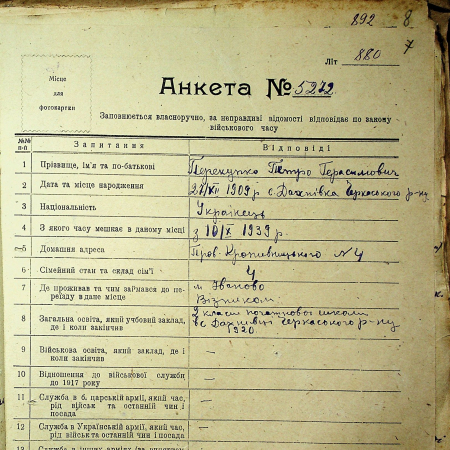 892 8
7
Літ 880
Місце
для
фотокартки
Анкета № 5272
Заповнюється власноручно, за неправдиві відомості відповідає по закону
військового часу
№№ п-п Запитання Відповіді
1 Прізвище, ім'я та по-батькові Перекупко Петро Герасимович
2 Дата та місце народження 21/XII 1909 р. с. Дахнівка Черкаського р-ну
3 Національність Українець
4 З якого часу мешкає в даному місці з 10/IX 1939 р.
5 Домашня адреса Пров. Кропивницького № 4
6 Сімейний стан та склад сім'ї 4
7 Де проживав та чим займався до переїзду в дане місце м. Іваново
Візником
8 Загальна освіта, який учбовий заклад, 2 класи початкової школи
де і коли закінчив в с. Дахнівці Черкаського р-ну
1920.
9 Військова освіта, який заклад, де і —
коли закінчив
10 Відношення до військової служби —
до 1917 року
11 Служба в б. царській армії, який час, —
рід військ та останній чин і
посада
12 Служба в Українській армії, який час, —
рід військ та останній чин і посада